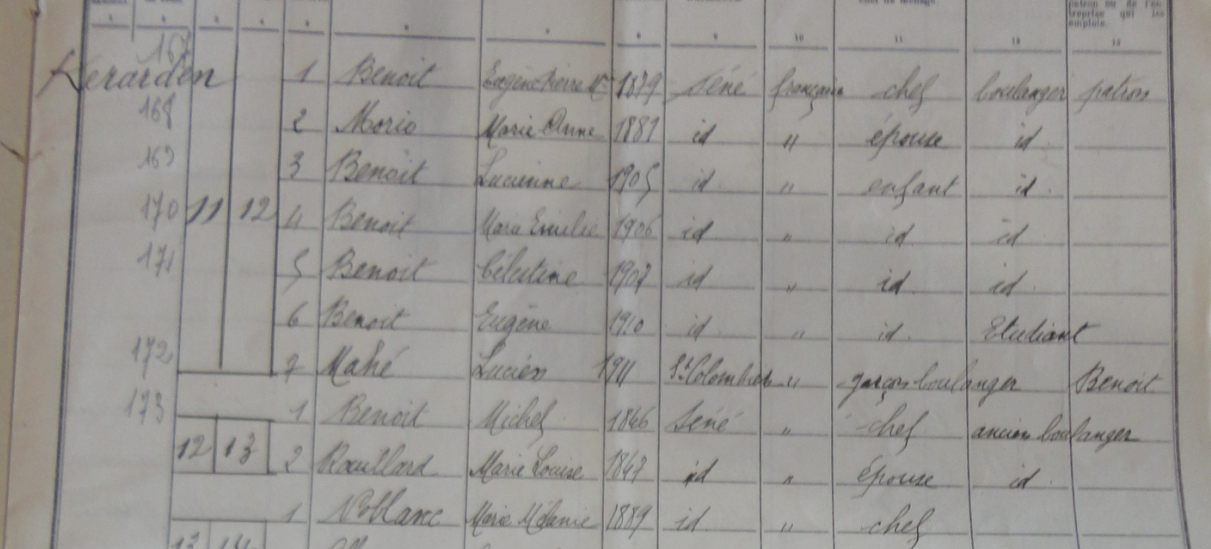 patron ou de l'en-
treprise qui les
emploie.
8 9 10 11 12 13
167
Kerarden 1 Benoit Eugène Pierre Mie 1879 Séné française chef boulanger patron
168
2 Morio Marie Anne 1881 id " épouse id
169
3 Benoit Lucienne 1905 id " enfant id
170 11 12 4 Benoit Marie Emilie 1906 id " id id
171
5 Benoit Célestine 1907 id " id id
6 Benoit Eugène 1910 id " id Etudiant
172
7 Mahé Lucien 1911 " garçon boulanger Benoit
173
1 Benoit Michel 1846 Séné " chef ancien boulanger
12 13 2 Rouillard Marie Louise 1847 id " épouse id
1 Marie Mélanie 1889 id " chef
13 14